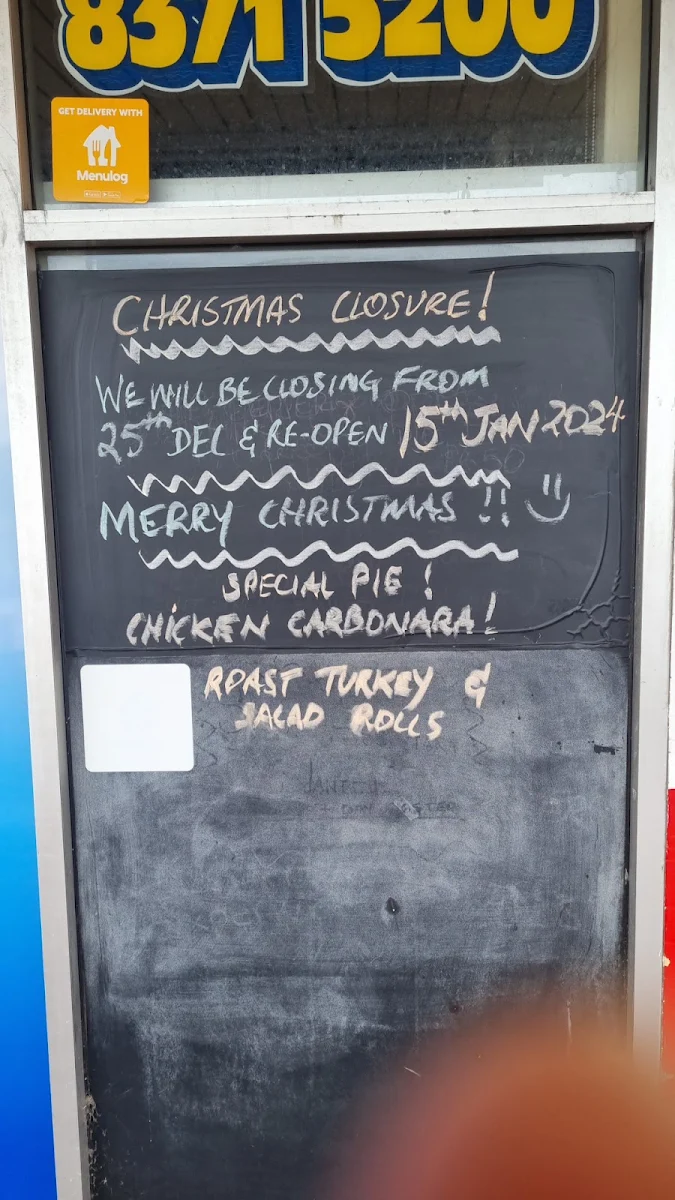 8371 5200
GET DELIVERY WITH
Menulog
CHRISTMAS CLOSURE!
WE WILL BE CLOSING FROM
25th DEC & RE-OPEN 15th JAN 2024
MERRY CHRISTMAS !!
SPECIAL PIE !
CHICKEN CARBONARA!
ROAST TURKEY &
SALAD ROLLS